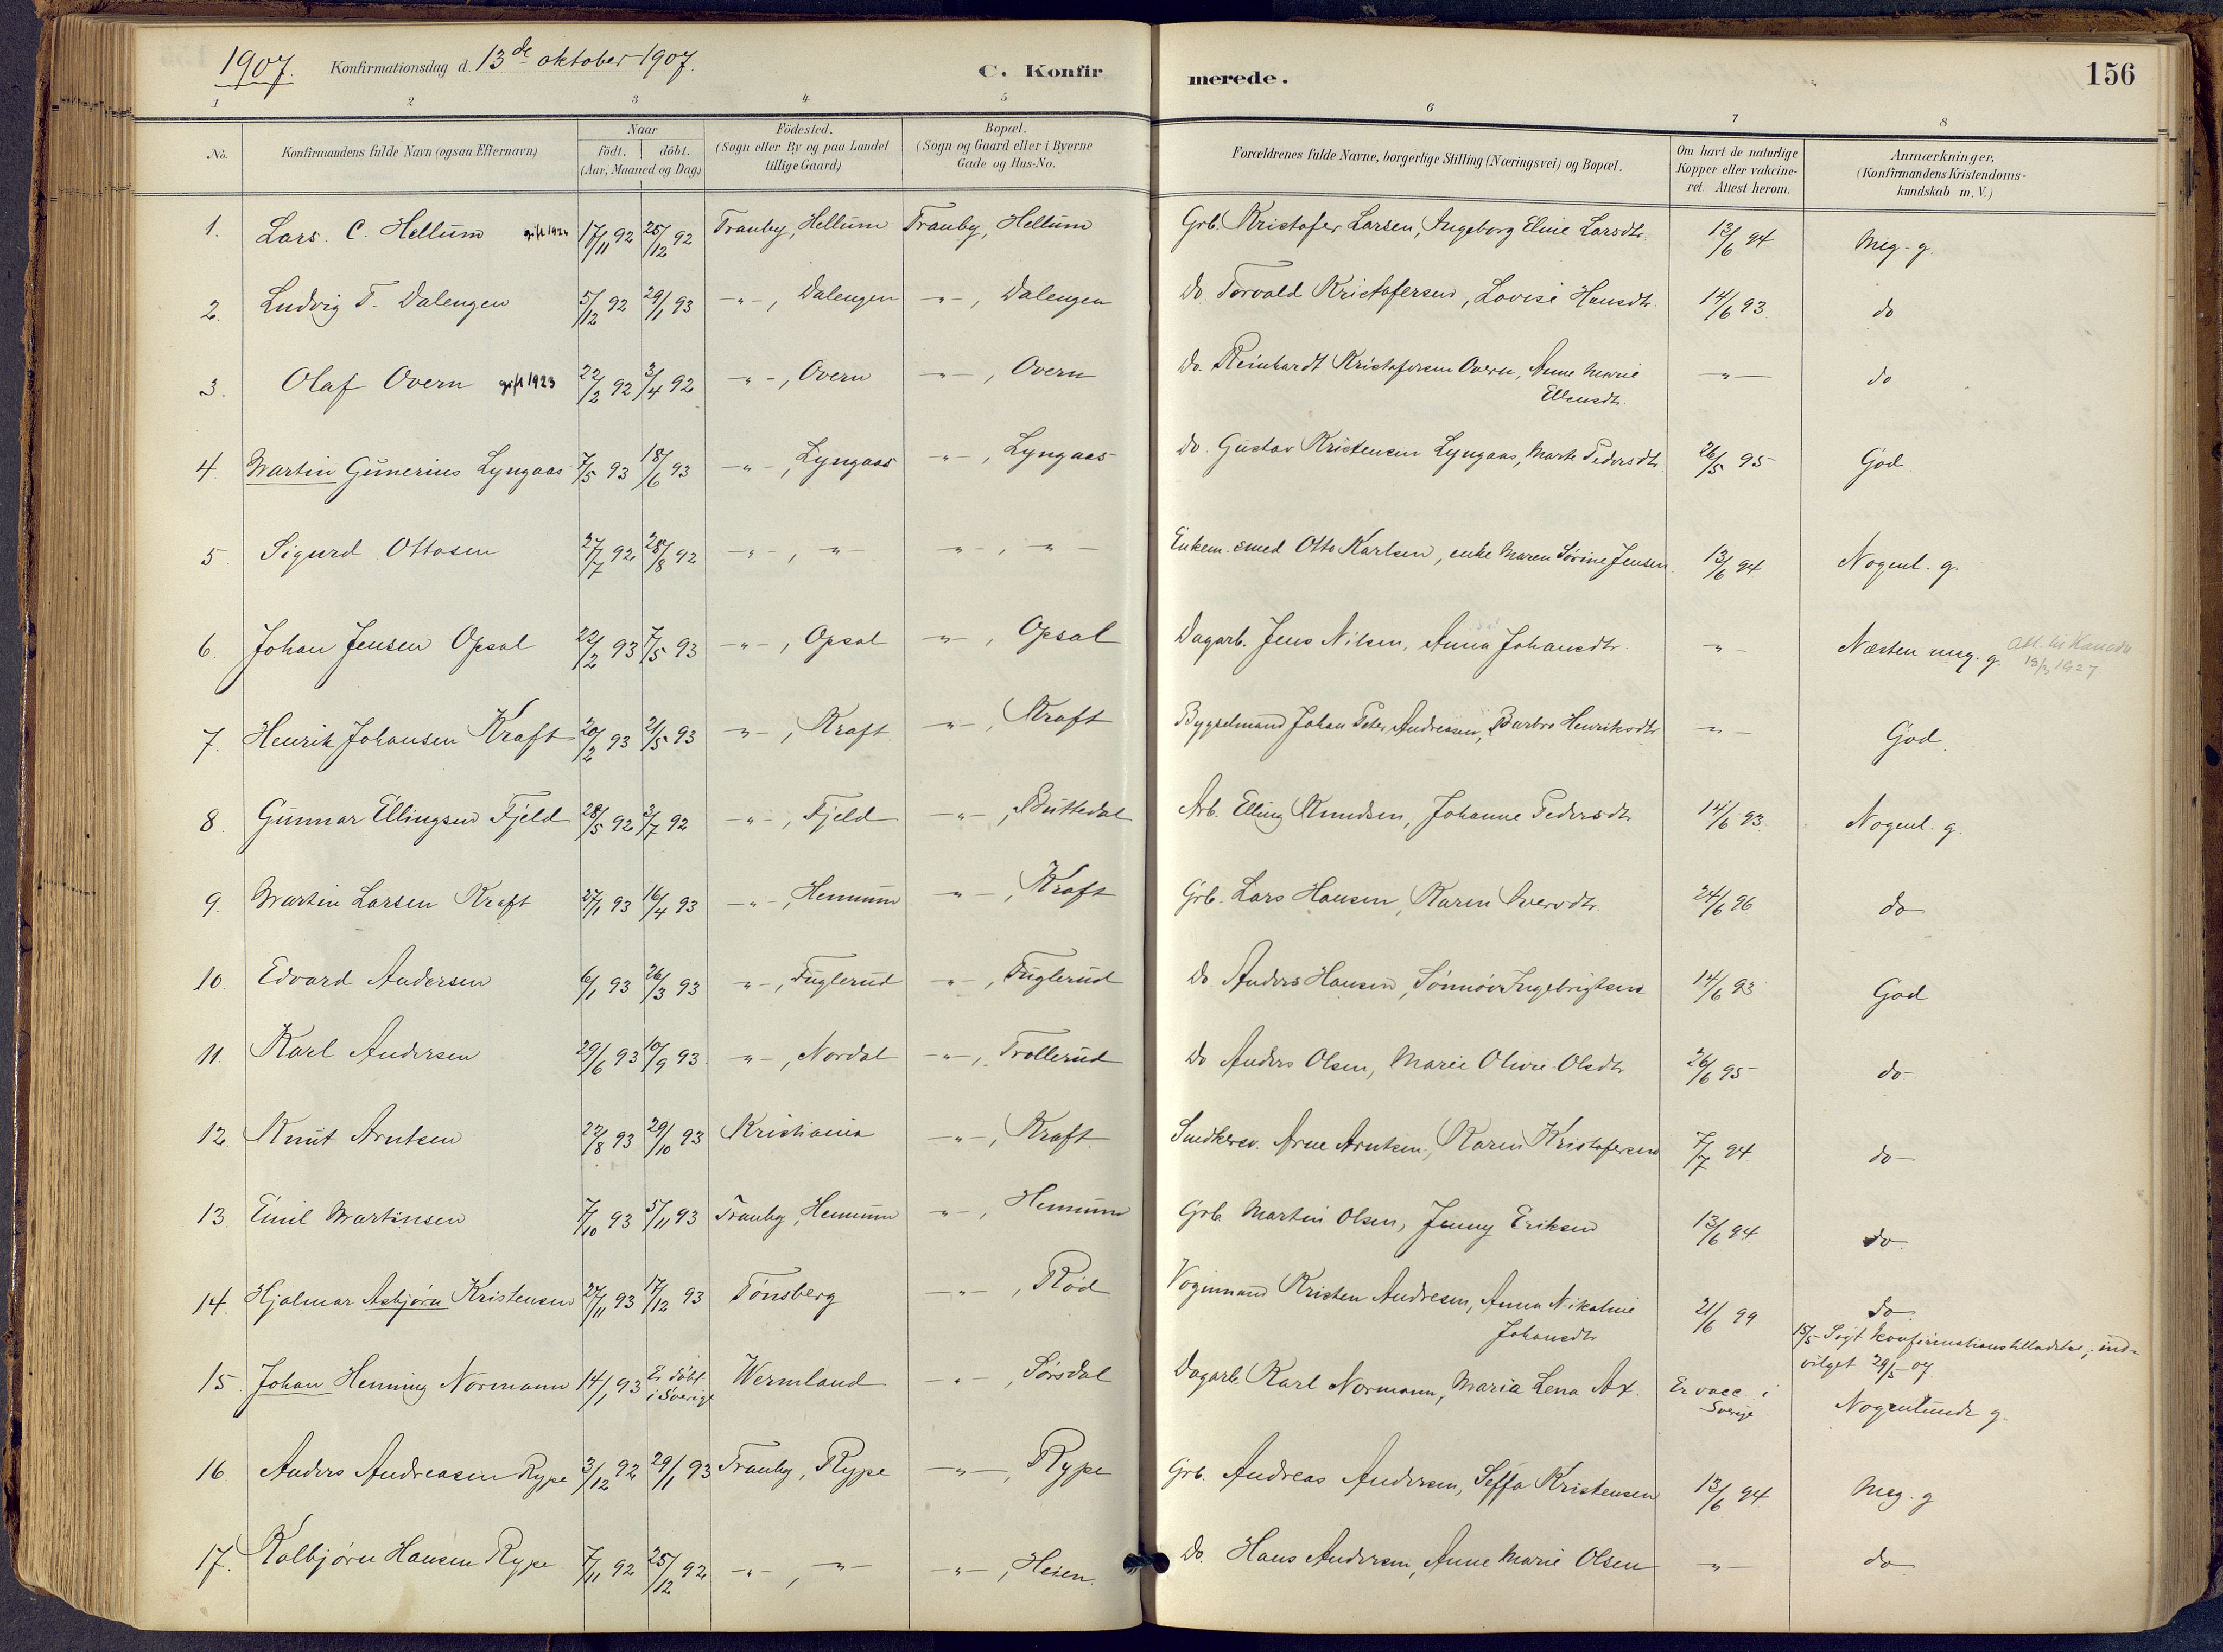 1907. Konfirmationsdag d. 13de oktober 1907. C. Konfirmerede. 156
1 2 3 4 5 6 7 8
No. Konfirmandens fulde Navn (ogsaa Efternavn) Naar födt. döbt. (Aar, Maaned og Dag) Födested. (Sogn eller By og paa Landet tillige Gaard) Bopæl. (Sogn og Gaard eller i Byerne Gade og Hus-No. Forældrenes fulde Navne, borgerlige Stilling (Næringsvei) og Bopæl. Om havt de naturlige Kopper eller vakcineret. Attest herom. Anmærkninger, (Konfirmandens Kristendomskundskab m. V.)
1. Lars. C. Hellum gift 1924 17/11 92 25/12 92 Tranby, Hellum Tranby, Hellum Grb. Kristofer Larsen, Ingeborg Eline Larsdtr. 13/6 94 Meg. g.
2. Ludvig T. Dalengen 5/12 92 29/1 93 -"-, Dalengen -"-, Dalengen Do. Torvald Kristofersen, Lovise Hansdtr. 14/6 93. do
3. Olaf Overn gift 1923 22/2 92 3/4 92 -"-, Overn -"-, Overn Do. Reinhardt Kristofersen Overn, Anne Marie -"- do
Ellensdtr.
4. Martin Gunerius Lyngaas 7/5 93 18/6 93 -"-, Lyngaas -"-, Lyngaas Do. Gustav Kristensen Lyngaas, Marte Pedersdtr. 26/5 95 God.
5. Sigurd Ottosen 27/7 92 28/8 92 -"-, -"- -"-, -"- Enkem. smed Otto Karlsen, enke Maren Sørine Jensen 13/6 94 Nogenl. g.
6. Johan Jensen Opsal 22/2 93 7/5 93 -"-, Opsal -"-, Opsal Dagarb. Jens Nilsen, Anna Johansdtr. -"- Næsten meg. g. att. til Kanada
1927
7. Henrik Johansen Kraft 20/2 93 21/5 93 -"-, Kraft -"-, Kraft Bygselmand Johan Peter Andreasen, Barbro Henriksdtr. -"- God.
8. Gunnar Ellingsen Fjeld 28/5 92 3/7 92 -"-, Fjeld -"-, Buttedal Arb. Elling Knudsen, Johanne Pedersdtr. 14/6 93. Nogenl. g.
9. Martin Larsen Kraft 27/1 93 16/4 93 -"-, Hennum -"-, Kraft Grb. Lars Hansen, Karen Iversdtr. 24/6 96 do
10. Edvard Andersen 6/1 93 26/3 93 -"-, Fuglerud -"-, Fuglerud Do Anders Hansen, Sønnøv Ingebrigtsen 14/6 93 God
11. Karl Andersen 29/6 93 10/9 93 -"-, Nordal -"-, Trollerud Do Anders Olsen, Marie Olivie Olsdtr 26/6 95 do.
12. Knut Arntsen 22/8 93 29/10 93 Kristiania -"-, Kraft Snedkersv. Arne Arntsen, Karen Kristofersen 7/7 94 do
13. Emil Martinsen 7/10 93 5/11 93 Tranby, Hennum -"-, Hennum Grb. Martin Olsen, Jenny Eriksen 13/6 94 do.
14. Hjalmar Asbjørn Kristensen 27/11 93 17/12 93 Tønsberg -"-, Rød Vognmand Kristen Andresen, Anna Nikoline 21/6 99 do
Johansdtr
15/5 Søgt konfirmationstilladelse; indvilget 29/5 07
15. Johan Henning Normann 14/1 93 Er døbt i Sverige Wermland -"-, Sørsdal Dagarb. Karl Normann, Maria Lena Ax. Er vacc. i Sverige. Nogenlunde g.
16. Anders Andreasen Rype 3/12 92 29/1 93 Tranby, Rype -"-, Rype Grb. Andreas Andersen, Seffa Kristensen 13/6 94 Meg. g
17. Kolbjørn Hansen Rype 7/11 92 25/12 92 -"-, -"- -"-, Heien. Do. Hans Andersen, Anne Marie Olsen -"- do